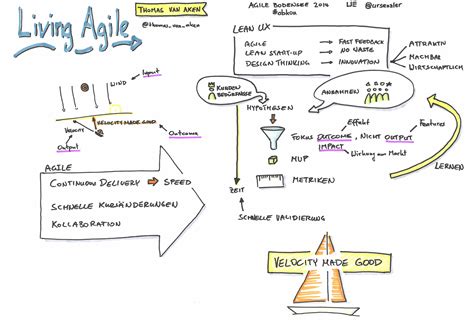 Living Agile
THOMAS VAN AKEN
@thomas_van_aken
AGILE BODENSEE 2014
#abkon
@ursenzler
LEAN UX
AGILE → FAST FEEDBACK
LEAN START-UP → NO WASTE
DESIGN THINKING → INNOVATION
ATTRAKTIV
MACHBAR
WIRTSCHAFTLICH
WIND
Input
VELOCITY
VELOCITY MADE GOOD
Output
Outcome
KUNDEN
BEDÜRFNISSE
HYPOTHESEN
ANNAHMEN
Effekt
Features
FOKUS OUTCOME, NICHT OUTPUT
IMPACT
Wirkung am Markt
MVP
METRIKEN
LERNEN
ZEIT
SCHNELLE VALIDIERUNG
AGILE
CONTINUOUS DELIVERY → SPEED
SCHNELLE KURSÄNDERUNGEN
KOLLABORATION
VELOCITY MADE GOOD